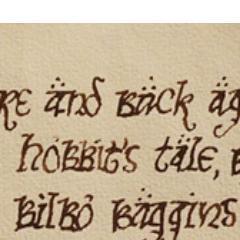 re and back ag
hobbit's tale, b
Bilbo Baggins